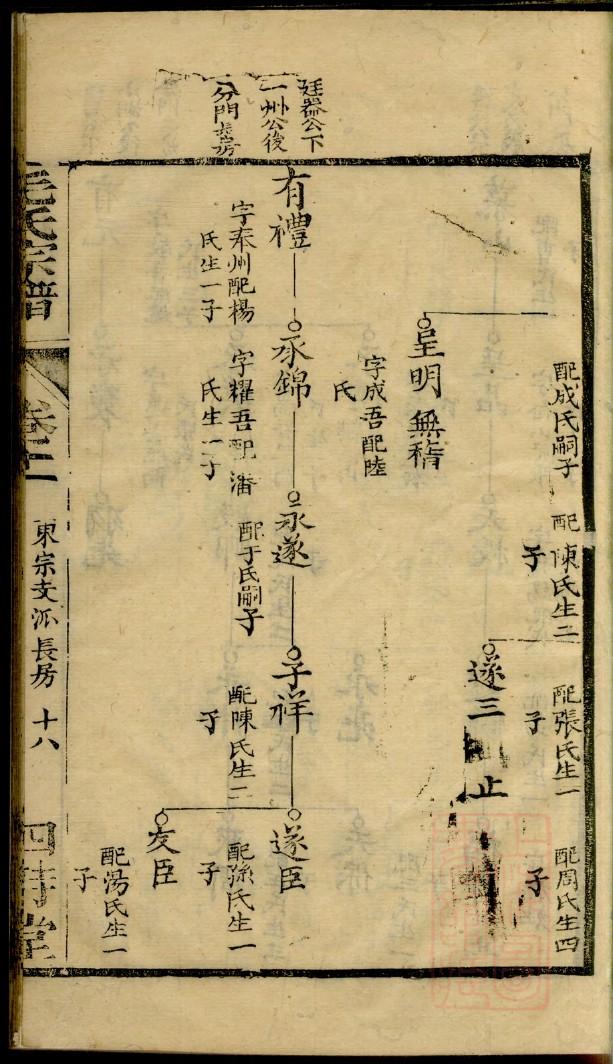 廷器公下
一州公後
分門長房
配成氏嗣子
配陳氏生二
子
配張氏生一
子
配周氏生四
子
遂三
止
呈明無稽
字成吾配陸
氏
有禮
承錦
永遂
子祥
遂臣
字奉州配楊
氏生一子
字耀吾配潘
氏生一子
配于氏嗣子
配陳氏生二
子
配孫氏生一
子
友臣
配湯氏生一
子
毛氏宗譜
卷二
東宗支派長房
十八